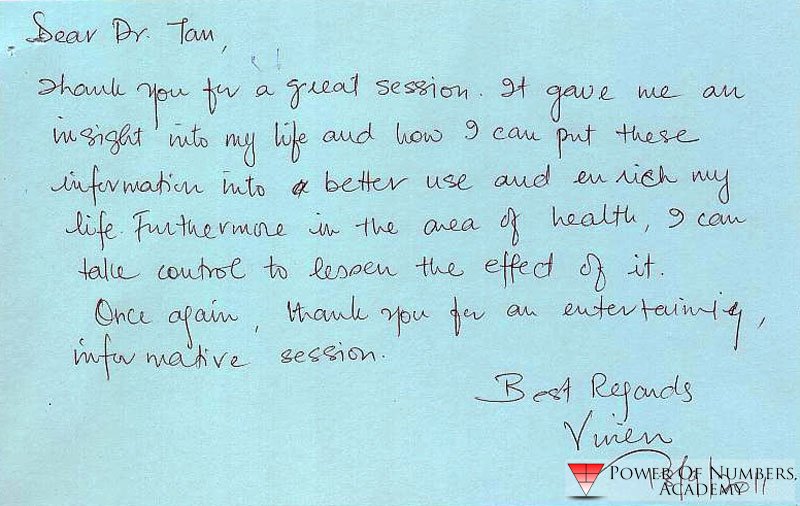 Dear Dr. Tan,
Thank you for a great session. It gave me an
insight into my life and how I can put these
information into better use and enrich my
life. Furthermore in the area of health, I can
take control to lessen the effect of it.
Once again, thank you for an entertaining,
informative session.
Best Regards
Vivien
POWER OF NUMBERS,
ACADEMY